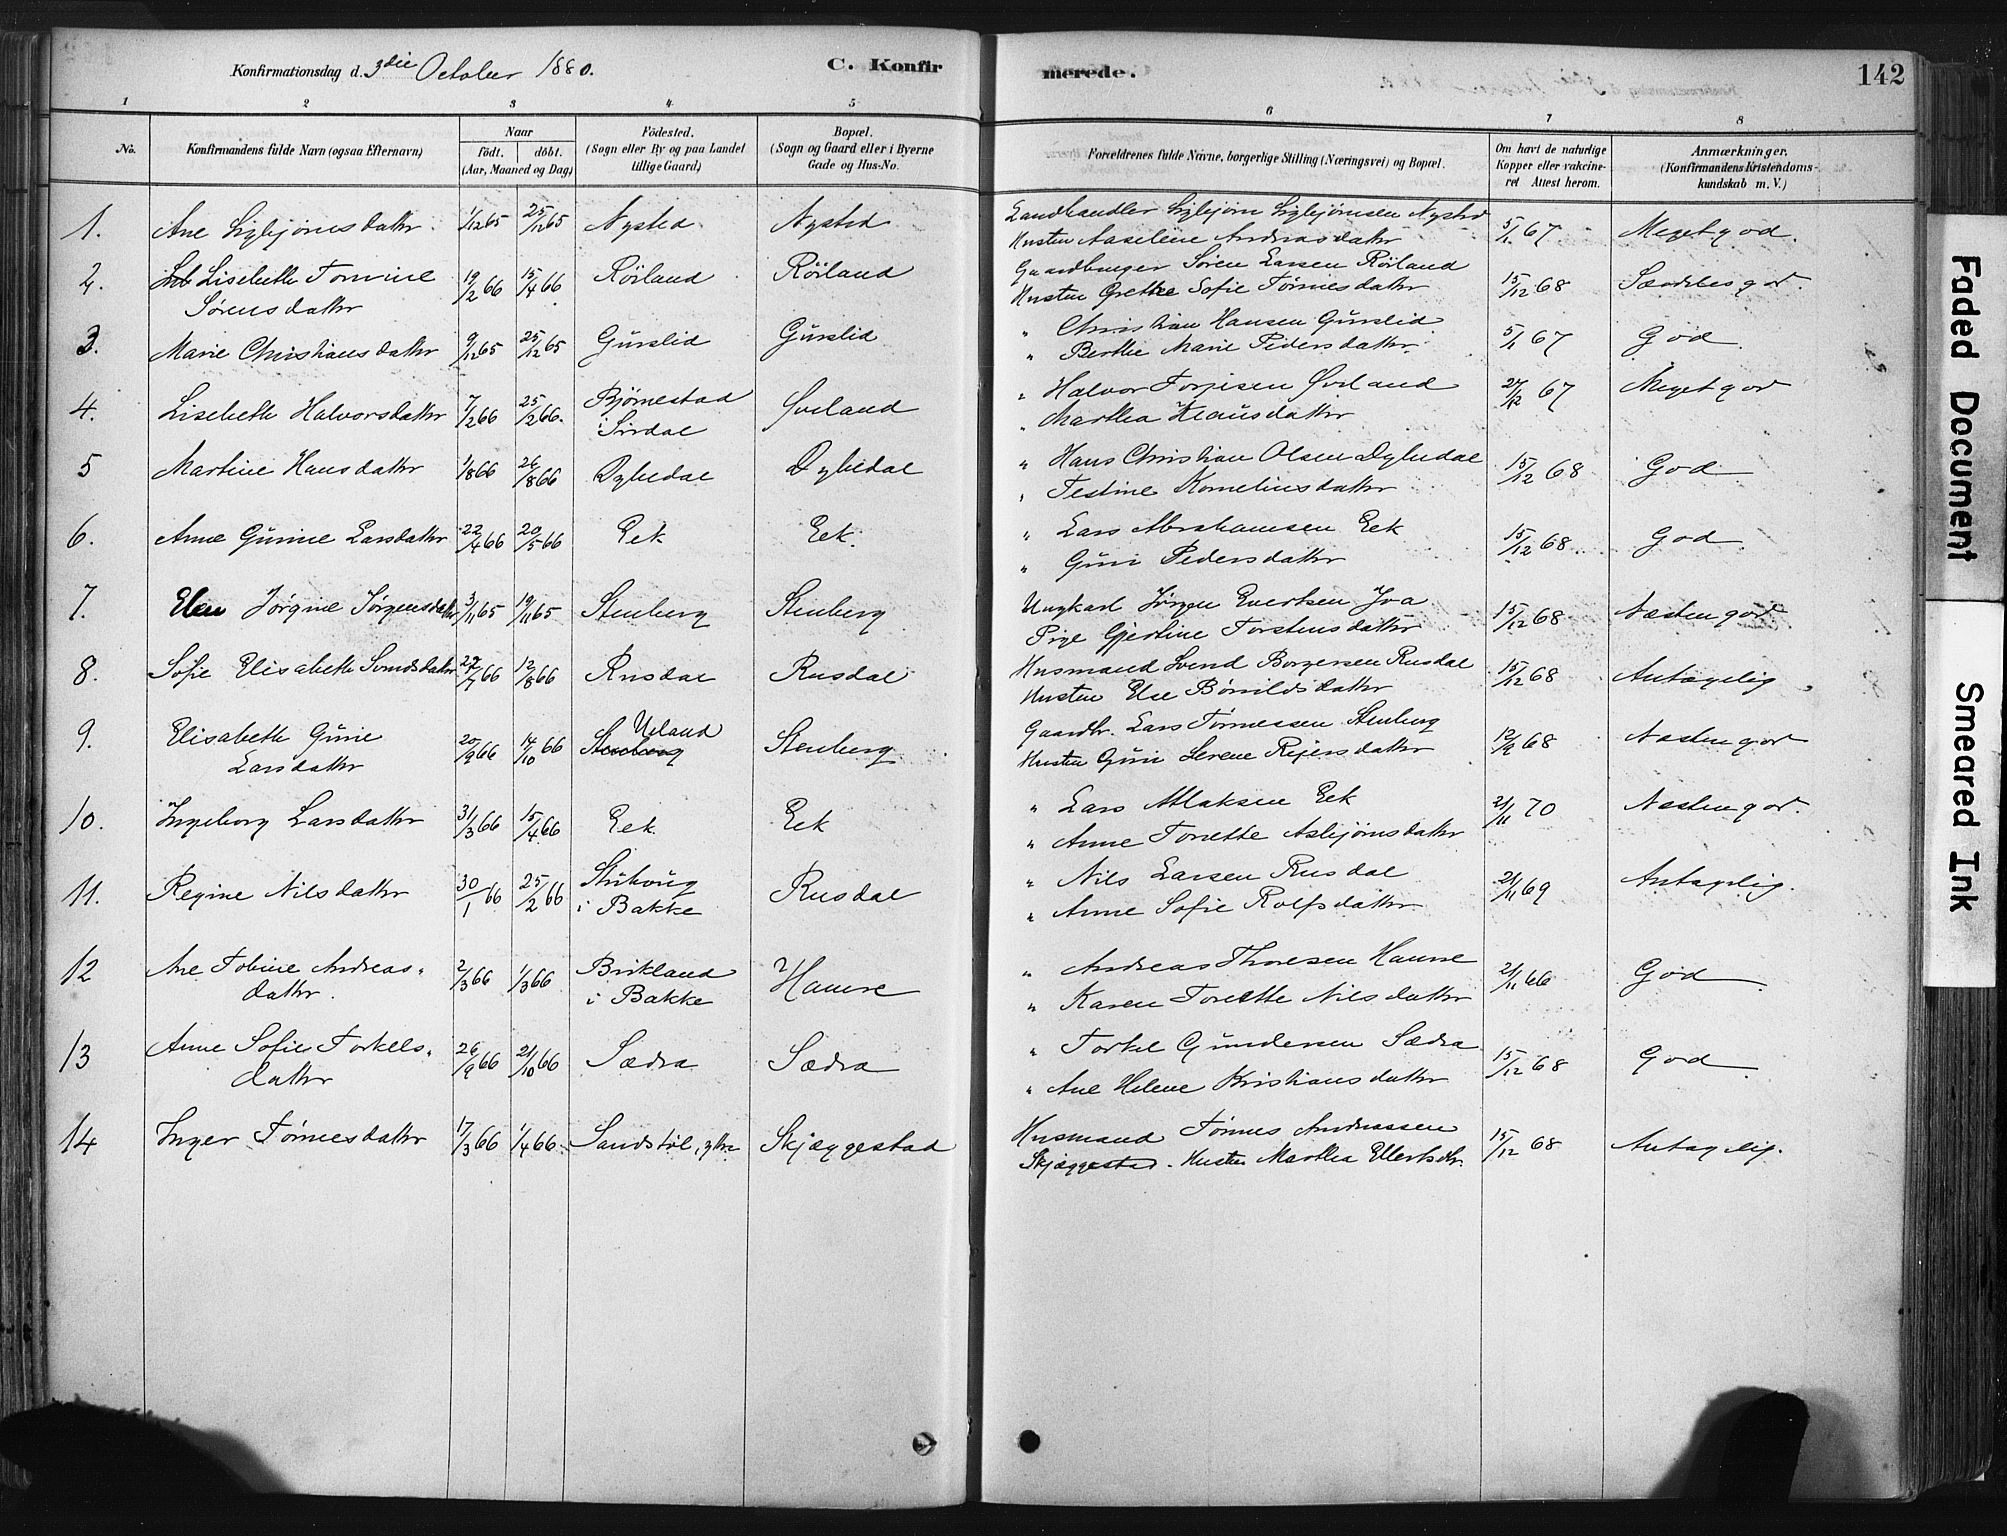 Konfirmationsdag d. 3die October 1880.
C. Konfirmerede.
142
1 2 3 4 5 6 7 8
No.
Konfirmandens fulde Navn (ogsaa Efternavn)
Naar
födt. döbt.
(Aar, Maaned og Dag)
Födested.
(Sogn eller By og paa Landet
tillige Gaard)
Bopæl.
(Sogn og Gaard eller i Byerne
Gade og Hus-No.
Forældrenes fulde Navne, borgerlige Stilling (Næringsvei) og Bopæl.
Om havt de naturlige
Kopper eller vakcine-
ret Attest herom.
Anmærkninger.
(Konfirmandens Kristendoms-
kundskab m. V.)
1. Ane Sigbjörnsdatter 1/12 65 25/12 65 Nysted Nysted
Landhandler Sigbjørn Sigbjørnsen Nysted
Hustru Aaselene Andreasdatter 5/1 67 Meget god.
2. Lisebeth Tomine
Sørensdatter 19/2 66 15/4 66 Röiland Röiland
Gaardbruger Sören Larsen Röiland
Hustru Grethe Sofie Tönnesdatter 15/12 68 Særdeles god.
3. Marie Christiansdatter 9/12 65 25/12 65 Gürslid Gürslid
" Christian Hansen Gürslid
" Berthe Marie Pedersdatter 5/1 67 God
4. Lisebeth Halvorsdatter 7/2 66 25/2 66. Bjørnestad
i Sirdal Øveland
" Halvor Torjesen Øveland
" Martha Klausdatter 27/12 67 Meget god
5 Martine Hansdatter 1/8 66 26/8 66 Dybedal Dybedal
" Hans Christian Olsen Dybedal
" Testine Korneliusdatter 15/12 68 God
6. Anne Gunine Larsdatter 22/4 66 20/5 66 Eek Eek.
" Lars Abrahamsen Eek
" Güri Pedersdatter 15/12 68. God.
7. Elen Jørgine Jørgensdatter 3/11 65 19/11 65 Stenberg Stenberg
Ungkarl Jörgen Evertsen Joa
Pige Gjertine Torstensdatter 15/12 68 Næsten god
8. Sofie Elisabeth Svendsdatter 27/7 66 12/8 66 Rusdal Rusdal
Husmand Svend Borgersen Rusdal
Hustru Else Börrildsdatter 15/12 68 Antagelig
9. Elisabeth Gurie
Larsdatter 20/9 66 14/10 66 Ueland
Stenberg Stenberg
Gaardbr. Lars Tönnessen Stenberg
Hustru Güri Serene Reiersdatter 12/9 68 Næsten god
10. Ingeborg Larsdatter 31/3 66 15/4 66 Eek Eek
" Lars Atlaksen Eek
" Anne Tonette Asbjørnsdatter 21/11 70 Næsten god.
11. Regine Nilsdatter 30/1 66 25/2 66 Stuhoug
i Bakke Rusdal
" Nils Larsen Rusdal
" Anne Sofie Rolfsdatter 21/11 69 Antagelig.
12 Ane Tobine Andreas-
datter. 2/3 66 1/3 66 Birkland
i Bakke Hamre
" Andreas Thoresen Hamre
" Karen Tonette Nilsdatter 21/11 66 God
13 Anne Sofie Torkels-
datter 26/9 66 21/10 66 Sædra Sædra
" Torkel Gundersen Sædra
" Ane Helene Kristiansdatter 15/12 68 God
14 Inger Tönnesdatter 17/3 66 1/4 66 Sandstöl, ytre Skjæggestad
Husmand Tönnes Andreassen
Skjæggestad. Hustru Martha Ellertsdtr. 15/12 68 Antagelig.
Faded Document
Smeared Ink